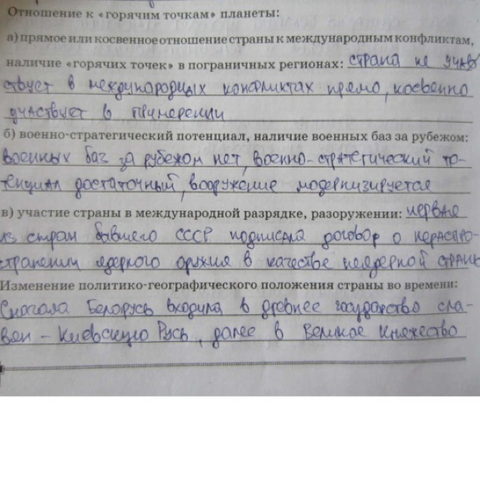 Отношение к «горячим точкам» планеты:
а) прямое или косвенное отношение страны к международным конфликтам,
наличие «горячих точек» в пограничных регионах: страна не участ
ствует в международных конфликтах прямо, косвенно
участвует в примерении
б) военно-стратегический потенциал, наличие военных баз за рубежом:
военных баз за рубежом нет, военно-стратегический по-
тенциал достаточный, вооружение модернизируется
в) участие страны в международной разрядке, разоружении: первая
из стран бывшего СССР подписала договор о нераспро-
странении ядерного оружия в качестве неядерной страны
Изменение политико-географического положения страны во времени:
Сначала Беларусь входила в древнее государство сла-
вян - Киевскую Русь, далее в Великое княжество